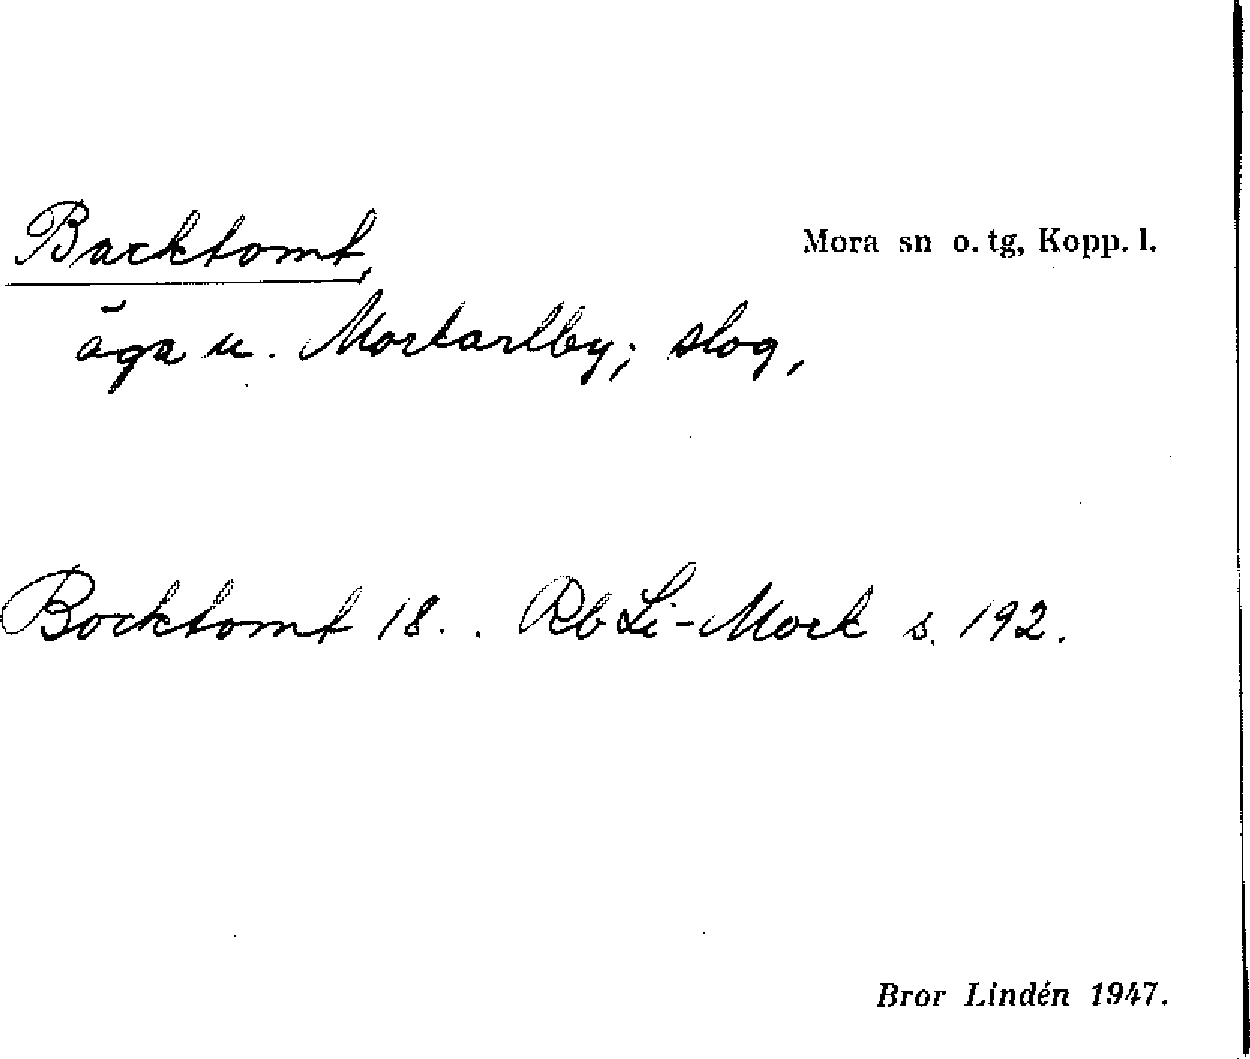 Backtomt, Mora sn o. tg, Kopp. l.
äga u. Morkarlby; slog,
Bocktomt 18.. Rb Li-Mork s. 192.
Bror Lindén 1947.